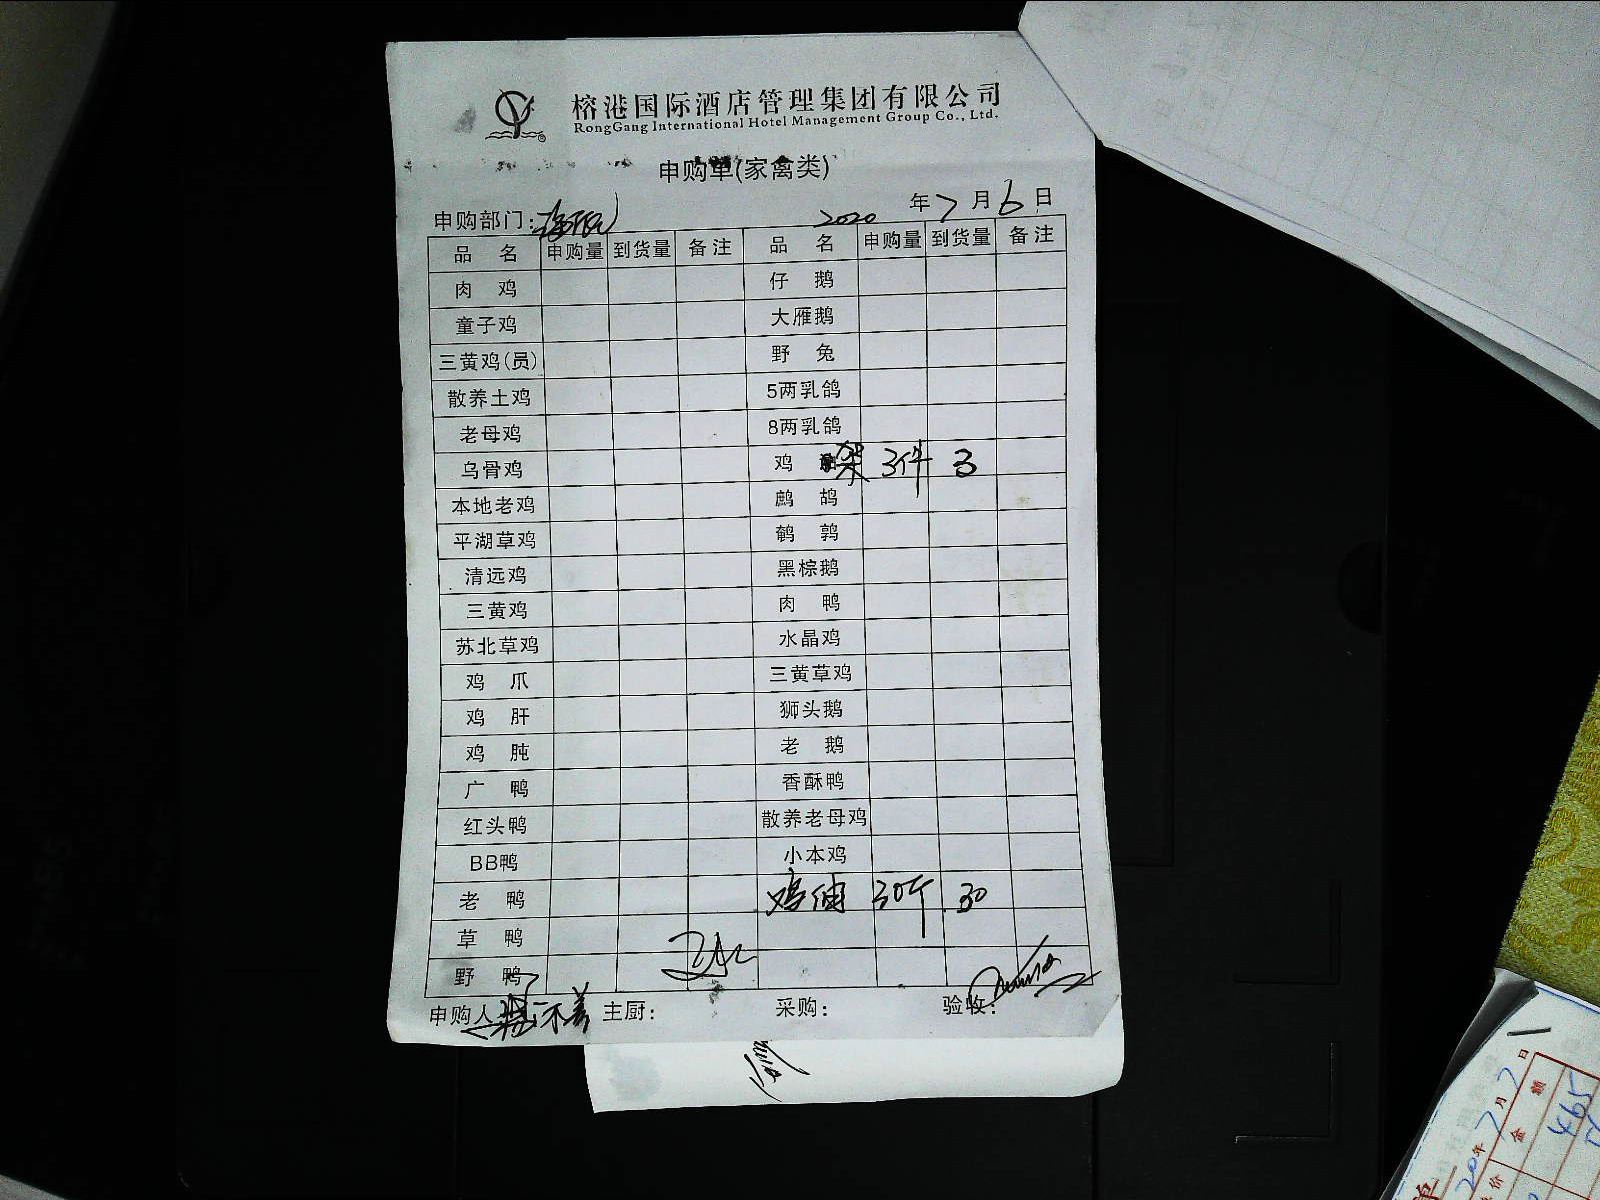 榕港国际酒店管理集团有限公司
RongGang International Hotel Management Group Co., Ltd.
申购单(家禽类)
申购部门: 2020 年 7 月 6 日
品 名 申购量 到货量 备注 品 名 申购量 到货量 备注
肉 鸡 仔 鹅
童子鸡 大雁鹅
三黄鸡(员) 野 兔
散养土鸡 5两乳鸽
老母鸡 8两乳鸽
乌骨鸡 鸡 架 3件 3
本地老鸡 鹧 鸪
平湖草鸡 鹌 鹑
清远鸡 黑棕鹅
三黄鸡 肉 鸭
苏北草鸡 水晶鸡
鸡 爪 三黄草鸡
鸡 肝 狮头鹅
鸡 肫 老 鹅
广 鸭 香酥鸭
红头鸭 散养老母鸡
BB鸭 小本鸡
老 鸭 鸡油 30斤 30
草 鸭
野 鸭
申购人 主厨: 采购: 验收:
20年 7 月 7 日
金 额
价
465
单